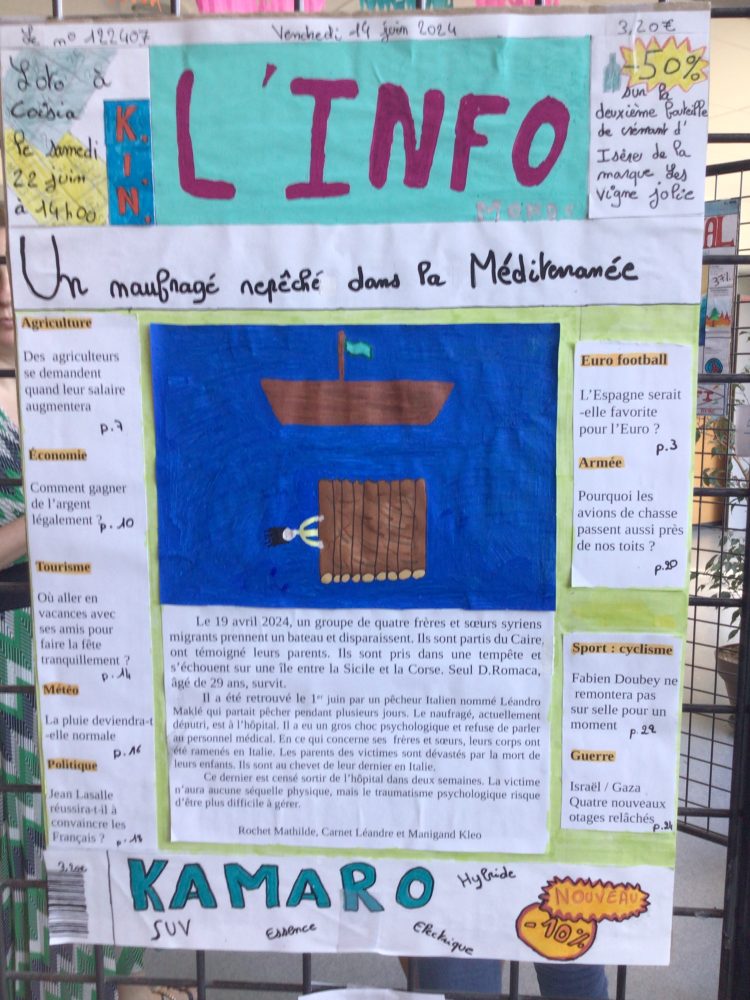 Le n° 122407
Vendredi 14 juin 2024
3,20€
Loto à
Coisia
le samedi
22 juin
à 14h00
K.I.N.
L'INFO
-50%
sur la
deuxième bouteille
de crémant d'
Isère de la
marque Les
Vigne jolie
Un naufragé repêché dans la Méditerranée
Agriculture
Des agriculteurs
se demandent
quand leur salaire
augmentera
p.7
Économie
Comment gagner
de l'argent
légalement ?
p.10
Tourisme
Où aller en
vacances avec
ses amis pour
faire la fête
tranquillement ?
p.14
Météo
La pluie deviendra-t
-elle normale
p.16
Politique
Jean Lasalle
réussira-t-il à
convaincre les
Français ?
p.18
Le 19 avril 2024, un groupe de quatre frères et sœurs syriens
migrants prennent un bateau et disparaissent. Ils sont partis du Caire,
ont témoigné leurs parents. Ils sont pris dans une tempête et
s'échouent sur une île entre la Sicile et la Corse. Seul D.Romaca,
âgé de 29 ans, survit.
Il a été retrouvé le 1er juin par un pêcheur Italien nommé Léandro
Maklé qui partait pêcher pendant plusieurs jours. Le naufragé, actuellement
dénutri, est à l'hôpital. Il a eu un gros choc psychologique et refuse de parler
au personnel médical. En ce qui concerne ses frères et sœurs, leurs corps ont
été ramenés en Italie. Les parents des victimes sont dévastés par la mort de
leurs enfants. Ils sont au chevet de leur dernier en Italie.
Ce dernier est censé sortir de l'hôpital dans deux semaines. La victime
n'aura aucune séquelle physique, mais le traumatisme psychologique risque
d'être plus difficile à gérer.
Rochet Mathilde, Carnet Léandre et Manigand Kleo
Euro football
L'Espagne serait
-elle favorite
pour l'Euro ?
p.3
Armée
Pourquoi les
avions de chasse
passent aussi près
de nos toits ?
p.20
Sport : cyclisme
Fabien Doubey ne
remontera pas
sur selle pour un
moment
p.22
Guerre
Israël / Gaza
Quatre nouveaux
otages relâchés
p.24
3,20€
KAMARO
Hybride
SUV
Essence
Electrique
NOUVEAU
-10%